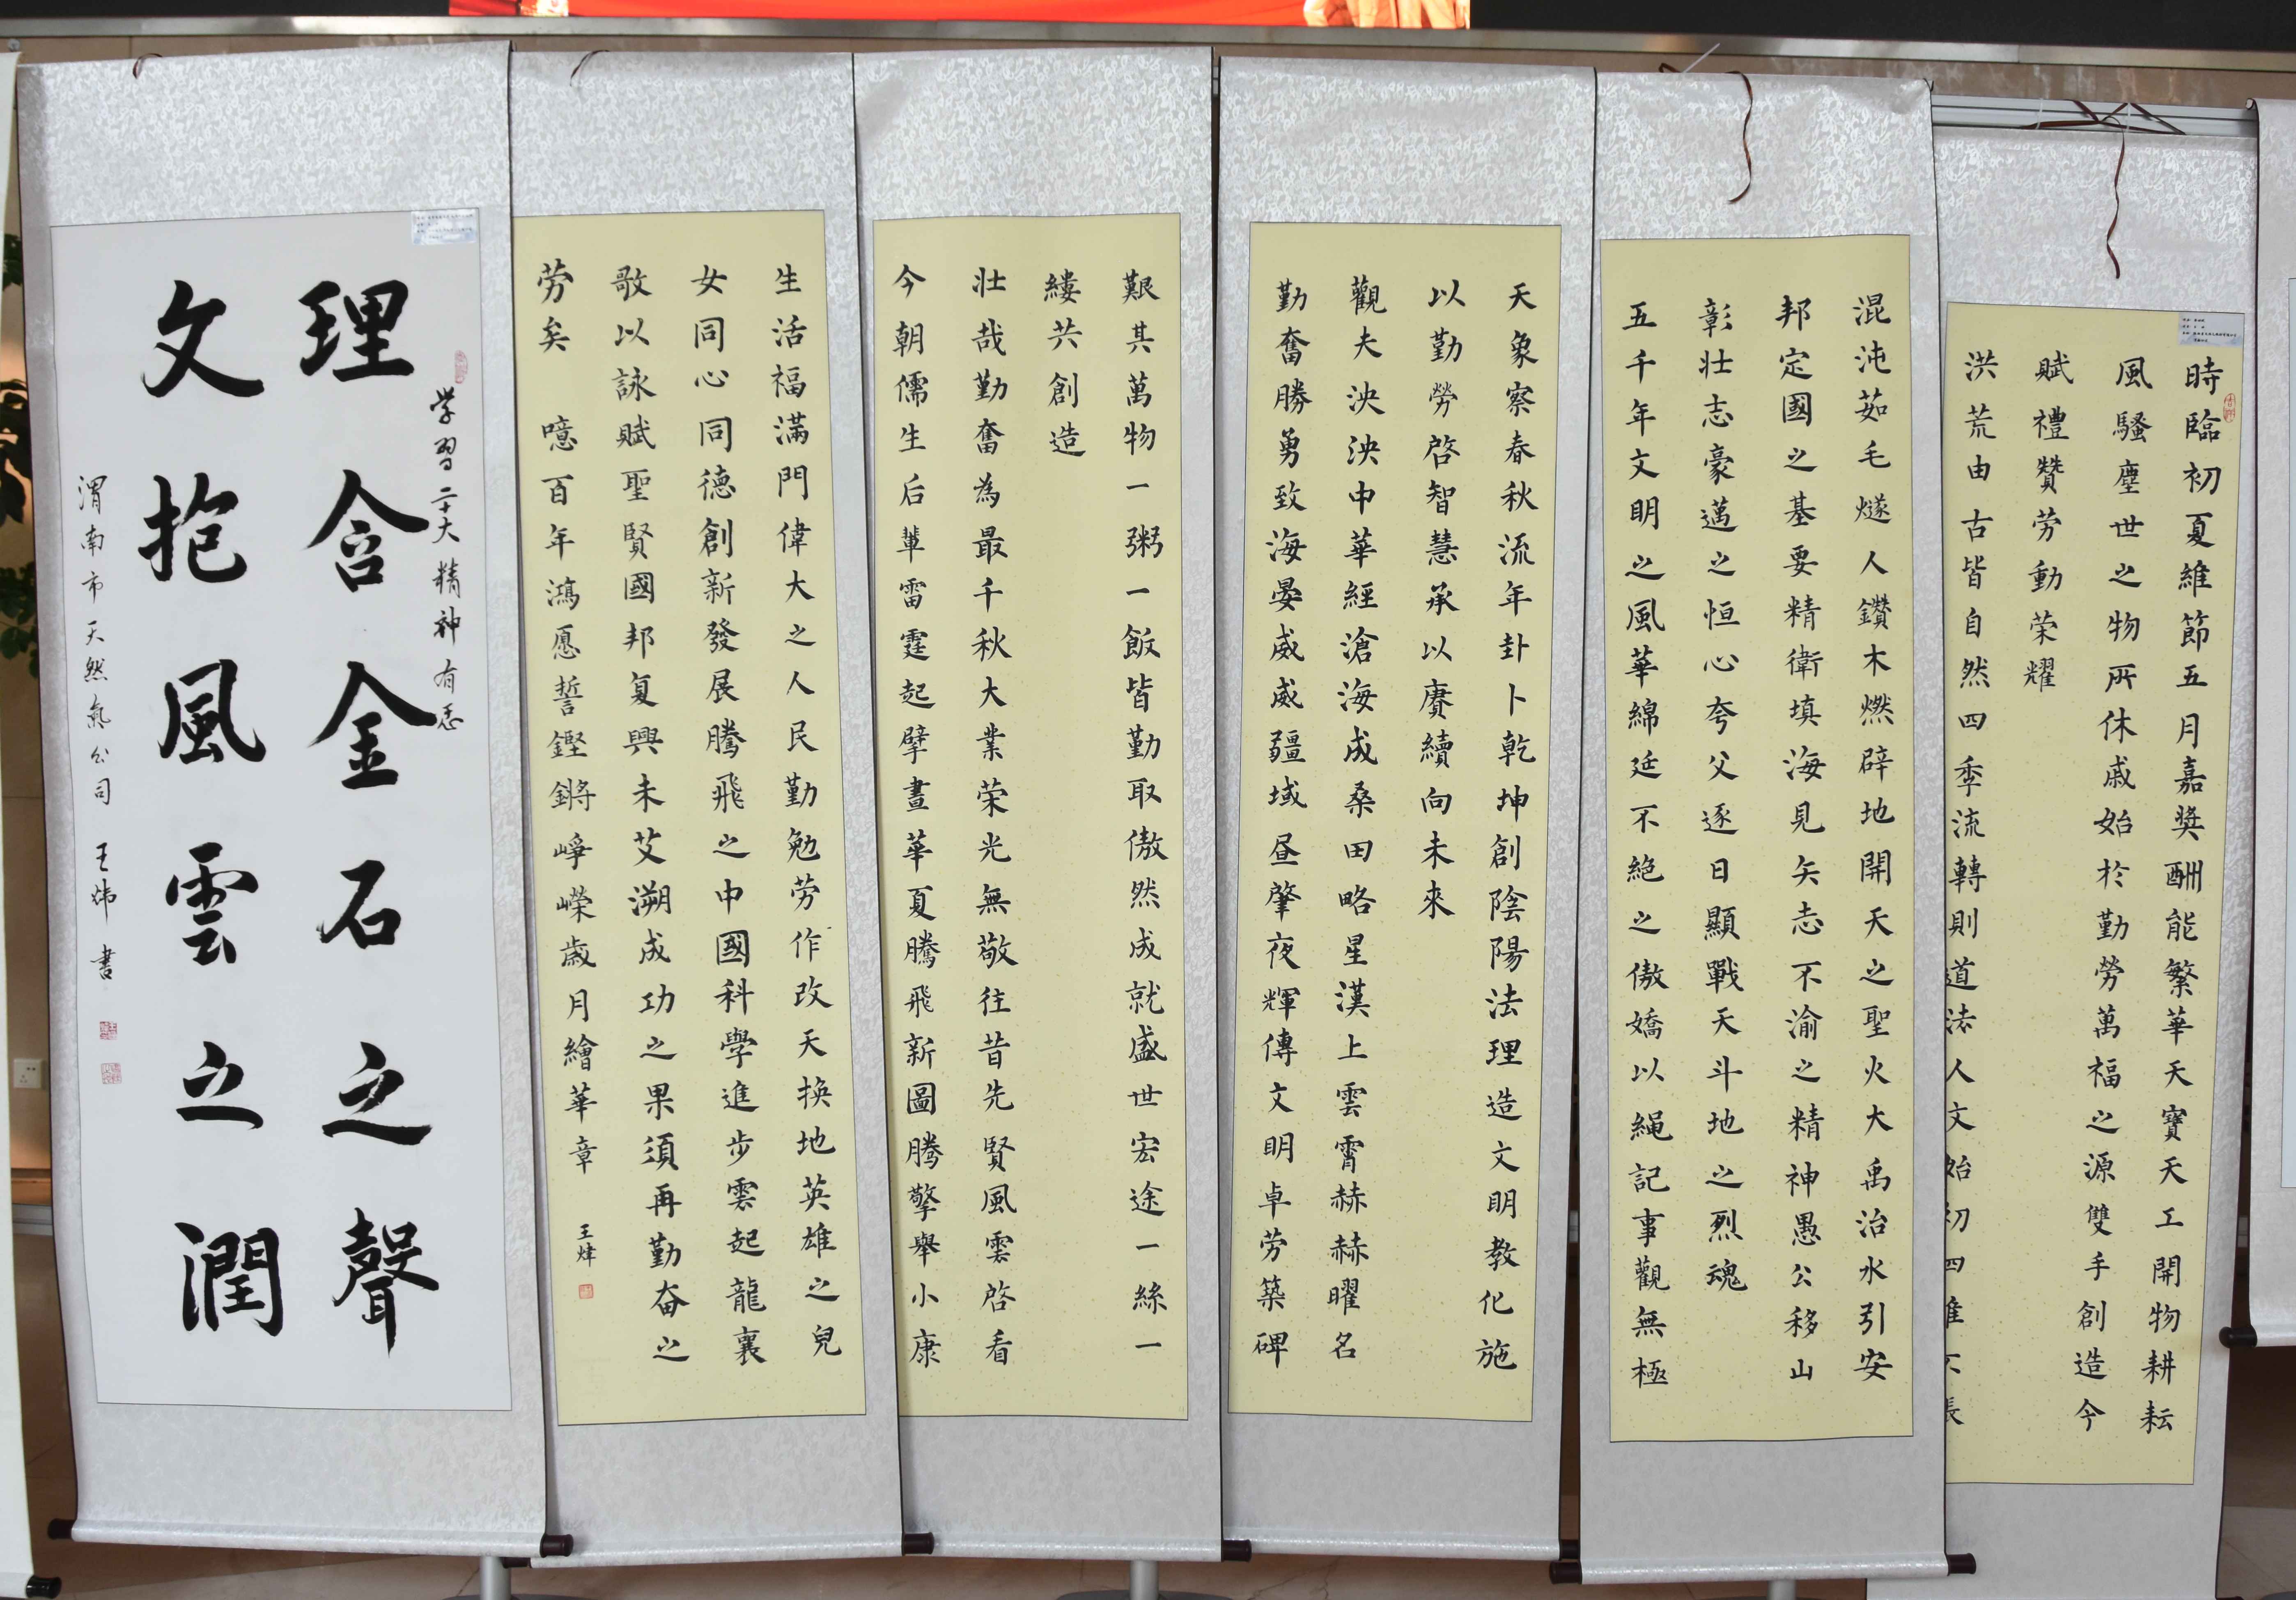 時臨初夏維節五月嘉獎酬能繁華天寶天工開物耕耘
風騷塵世之物所休戚始於勤勞萬福之源雙手創造今
賦禮贊劳動荣耀
洪荒由古皆自然四季流轉則道法人文始初四維不張
混沌茹毛燧人鑽木燃辟地開天之聖火大禹治水引安
邦定國之基要精衛填海見矢志不渝之精神愚公移山
彰壯志豪邁之恒心夸父逐日顯戰天斗地之烈魂
五千年文明之風華綿延不絶之傲嬌以繩記事觀無極
天象察春秋流年卦卜乾坤創陰陽法理造文明教化施
以勤勞啓智慧承以賡續向未來
觀夫泱泱中華經滄海成桑田略星漢上雲霄赫赫曜名
勤奮勝勇致海晏威威疆域昼肇夜輝傳文明卓劳築碑
艱其萬物一粥一飯皆勤取傲然成就盛世宏途一絲一
縷共創造
壯哉勤奮為最千秋大業荣光無敬往昔先賢風雲啓看
今朝儒生后輩雷霆起擘畫華夏騰飛新圖騰擎舉小康
生活福滿門偉大之人民勤勉劳作改天換地英雄之兒
女同心同德創新發展騰飛之中國科學進步雲起龍襄
歌以詠賦聖賢國邦复興未艾溯成功之果須再勤奋之
劳矣 噫百年鴻愿誓鏗鏘崢嶸歲月繪華章
王煒
学習二十大精神有感
理含金石之聲
文抱風雲之潤
渭南市天然氣公司 王炜 書